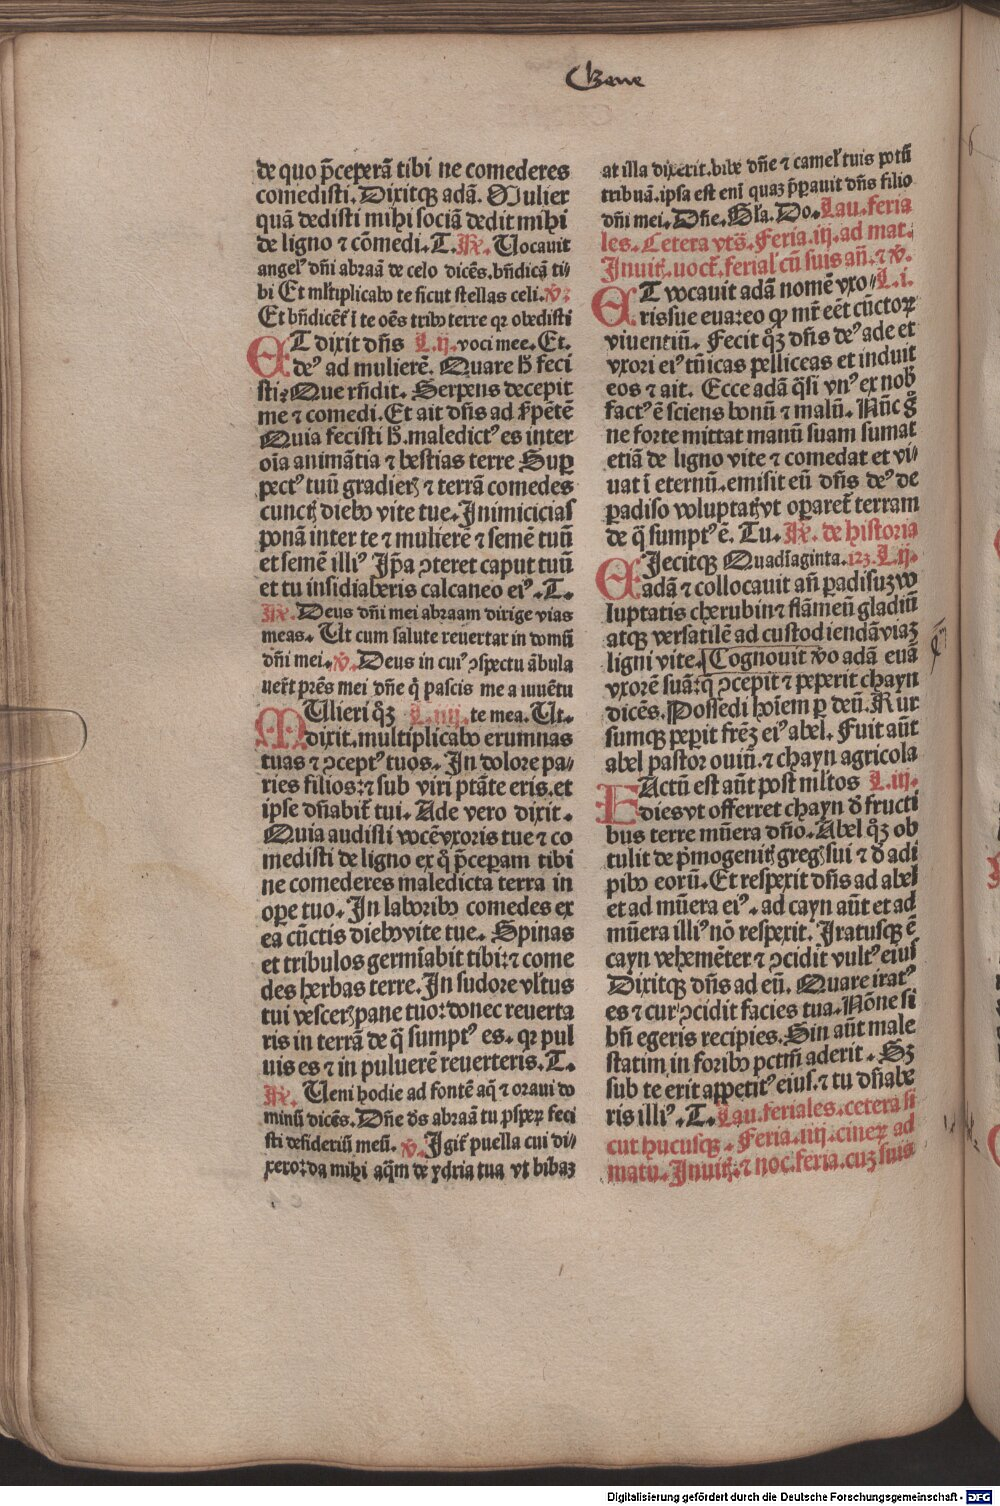 Gene
de quo p̄ceperā tibi ne comederes
comedisti. Dixitqȝ adā. Mulier
quā dedisti mihi sociā dedit mihi
de ligno ⁊ cōmedi. T. R̄. Uocauit
angelꝰ dn̄i abraā de celo dicēs. bn̄dicā ti⸗
bi Et ml̄tiplicabo te sicut stellas celi. v̄.
Et bn̄dicēt̄ ī te oēs tribꝰ terre qꝛ obedisti
ET dixit dn̄s L.ij. voci mee. Et.
deꝰ ad mulierē. Quare h̄ feci
sti: Que rn̄dit. Serpens decepit
me ⁊ comedi. Et ait dn̄s ad s̄pētē
Quia fecisti h̄. maledictꝰ es inter
oīa animātia ⁊ bestias terre Suꝑ
pectꝰ tuū gradierꝭ ⁊ terrā comedes
cunctꝭ diebꝰ vite tue. Inimicicias
ponā inter te ⁊ mulierē ⁊ semē tuū
et semē illiꝰ Ip̄a ꝯteret caput tuū
et tu insidiaberis calcaneo eiꝰ. T.
R̄. Deus dn̄i mei abraam dirige vias
meas. Ut cum salute reuertar in domū
dn̄i mei. v̄. Deus in cuiꝰ ꝯspectu ābula
uer̄t prēs mei dn̄e q̄ pascis me a iuuētu
MUlieri qͦȝ L.iij. te mea. Ut.
dixit. multiplicabo erumnas
tuas ⁊ ꝯceptꝰ tuos. In dolore pa⸗
ries filios: ⁊ sub viri ptāte eris. et
ipse dn̄abit̄ tui. Ade vero dixit.
Quia audisti vocē vxoris tue ⁊ co
medisti de ligno ex qͦ p̄ceꝑam tibi
ne comederes maledicta terra in
oꝑe tuo. In laboribꝰ comedes ex
ea cūctis diebꝰ vite tue. Spinas
et tribulos germīabit tibi: ⁊ come
des herbas terre. In sudore vl̄tus
tui vescerꝭ pane tuo: donec reuerta
ris in terrā de q̄ sumptꝰ es. qꝛ pul
uis es ⁊ in puluerē reuerteris. T.
R̄. Ueni hodie ad fontē aq̄ ⁊ oraui do
minū dicēs. Dn̄e d̄s abraā tu ꝓsꝑeꝝ feci
sti desideriū meū. v̄. Igit̄ puella cui di⸗
xero: da mihi aq̄m de ydria tua vt bibaȝ
at illa dixerit. bibe dn̄e ⁊ camel̄ tuis potū
tribuā. ipsa est enī quaȝ p̄ꝑauit dn̄s filio
dn̄i mei. Dn̄e. Gl̄a. Do. Lau. feria
les. Cetera vts̄. Feria. iij. ad mat.
Inuit̄. noct̄. ferial̄ cū suis an̄. ⁊ v̄.
ET vocauit adā nomē vxo⸗ L.i.
ris sue eua: eo ꝙ mr̄ eēt cūctoꝝ
viuentiū. Fecit qͦȝ dn̄s deꝰ ade et
vxori eiꝰ tūicas pelliceas et induit
eos ⁊ ait. Ecce adā q̄si vnꝰ ex nob̄
factꝰ ē sciens bonū ⁊ malū. Nūc gͦ
ne forte mittat manū suam sumat
etiā de ligno vite ⁊ comedat et vi⸗
uat ī eternū. emisit eū dn̄s deꝰ de
ꝑadiso voluptatꝭ vt oꝑaret̄ terram
de q̄ sumptꝰ ē. Tu. R̄. de historia
EIecitqȝ Quadragīnta. 123. L.ij.
adā ⁊ collocauit an̄ ꝑadisuȝ vo
luptatis cherubin ⁊ flāmeū gladiū
atqȝ versatilē ad custodiendā viaȝ
ligni vite. Cognouit v̄o adā euā
vxorē suā: q̄ ꝯcepit ⁊ peperit chayn
dicēs. Possedi hoīem ꝑ deū. Rur
sumqȝ peꝑit frēȝ eiꝰ abel. Fuit aūt
abel pastor ouiū. ⁊ chayn agricola
FActū est aūt post ml̄tos L.iij.
dies vt offerret chayn d̄ fructi
bus terre mūera dn̄o. Abel qͦȝ ob
tulit de p̄mogenitꝭ gregꝭ sui ⁊ d̄ adi
pibꝰ eorū. Et respexit dn̄s ad abel
et ad mūera eiꝰ. ad cayn aūt et ad
mūera illiꝰ nō respexit. Iratusqȝ ē
cayn vehemēter ⁊ ꝯcidit vultꝰ eius
Dixitqȝ dn̄s ad eū. Quare iratꝰ
es ⁊ cur ꝯcidit facies tua. Nōne si
bn̄ egeris recipies. Sin aūt male
statim in foribꝰ pctm̄ aderit. Sȝ
sub te erit appetitꝰ eius. ⁊ tu dn̄abe
ris illiꝰ. T. Lau. feriales. cetera si
cut hucusqȝ. Feria. iiij. cineꝝ ad
matu. Inuit̄. ⁊ noc. feria. cuȝ suis
Digitalisierung gefördert durch die Deutsche Forschungsgemeinschaft - DFG